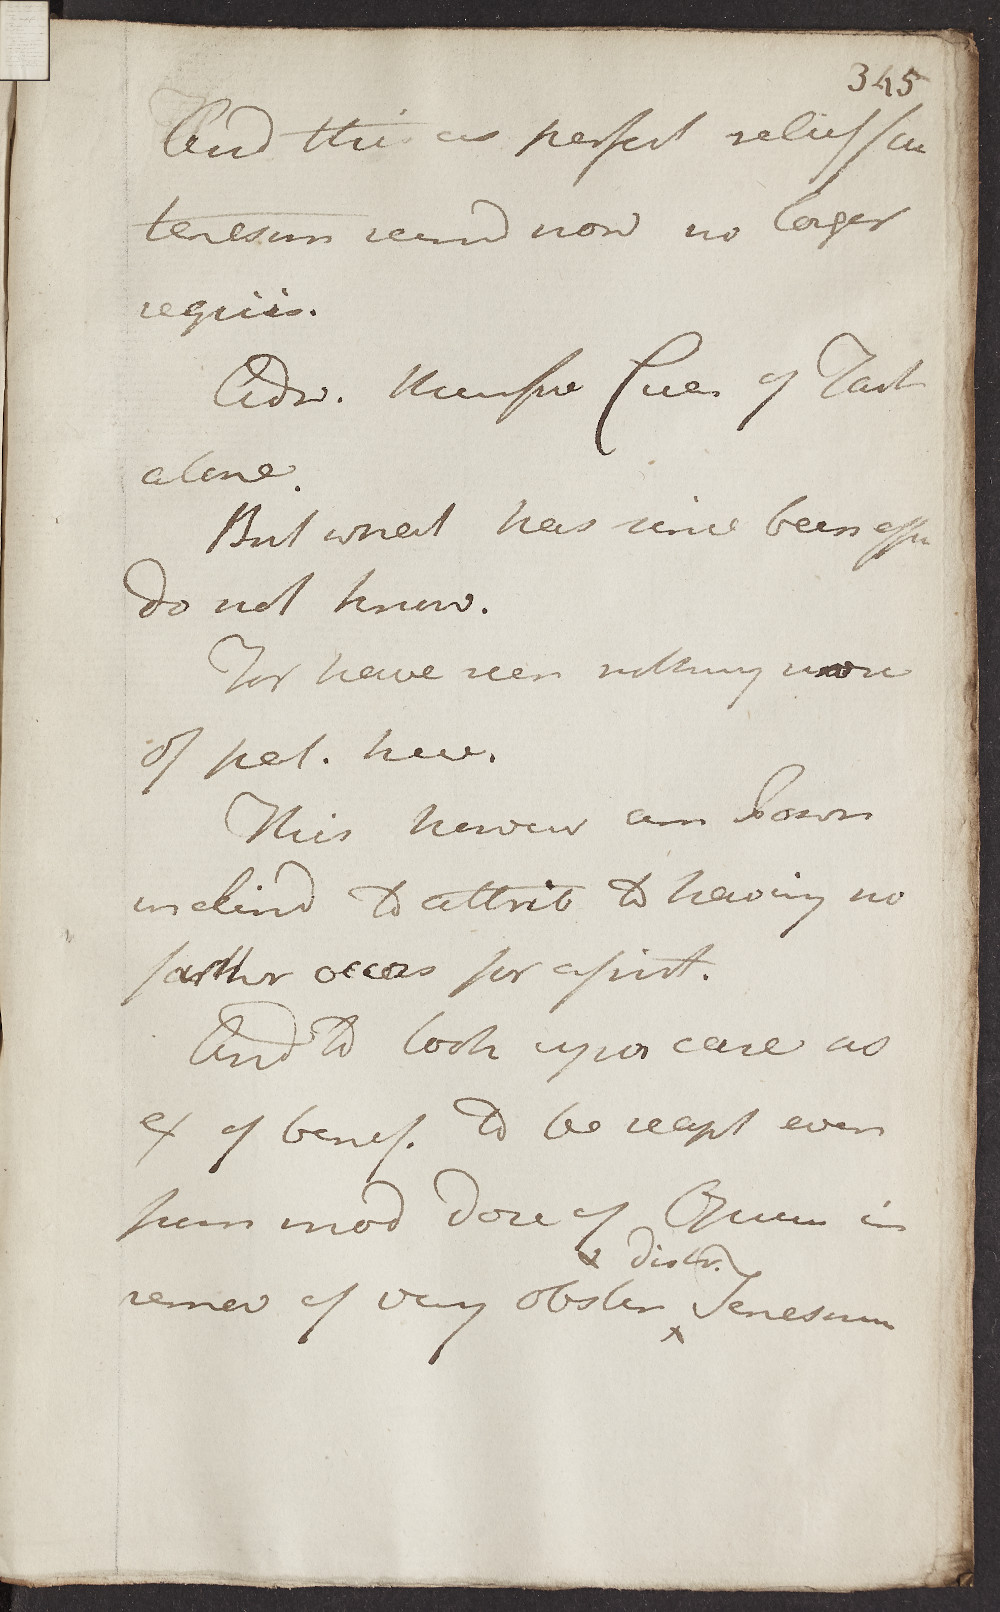 345
And this as perfect relief from
tenesm seemd now no longer
requis.
Adv. therefore Crem of Tart
alone.
But what has since been effec
do not know.
For have seen nothing more
of pat. here.
This howevr am down
inclind to attrib to having no
farther occas for assist.
And to look upon case as
ex of benef. to be reapt even
from mod dose of Opium in
remov of very obstin & distr. Tenesmus